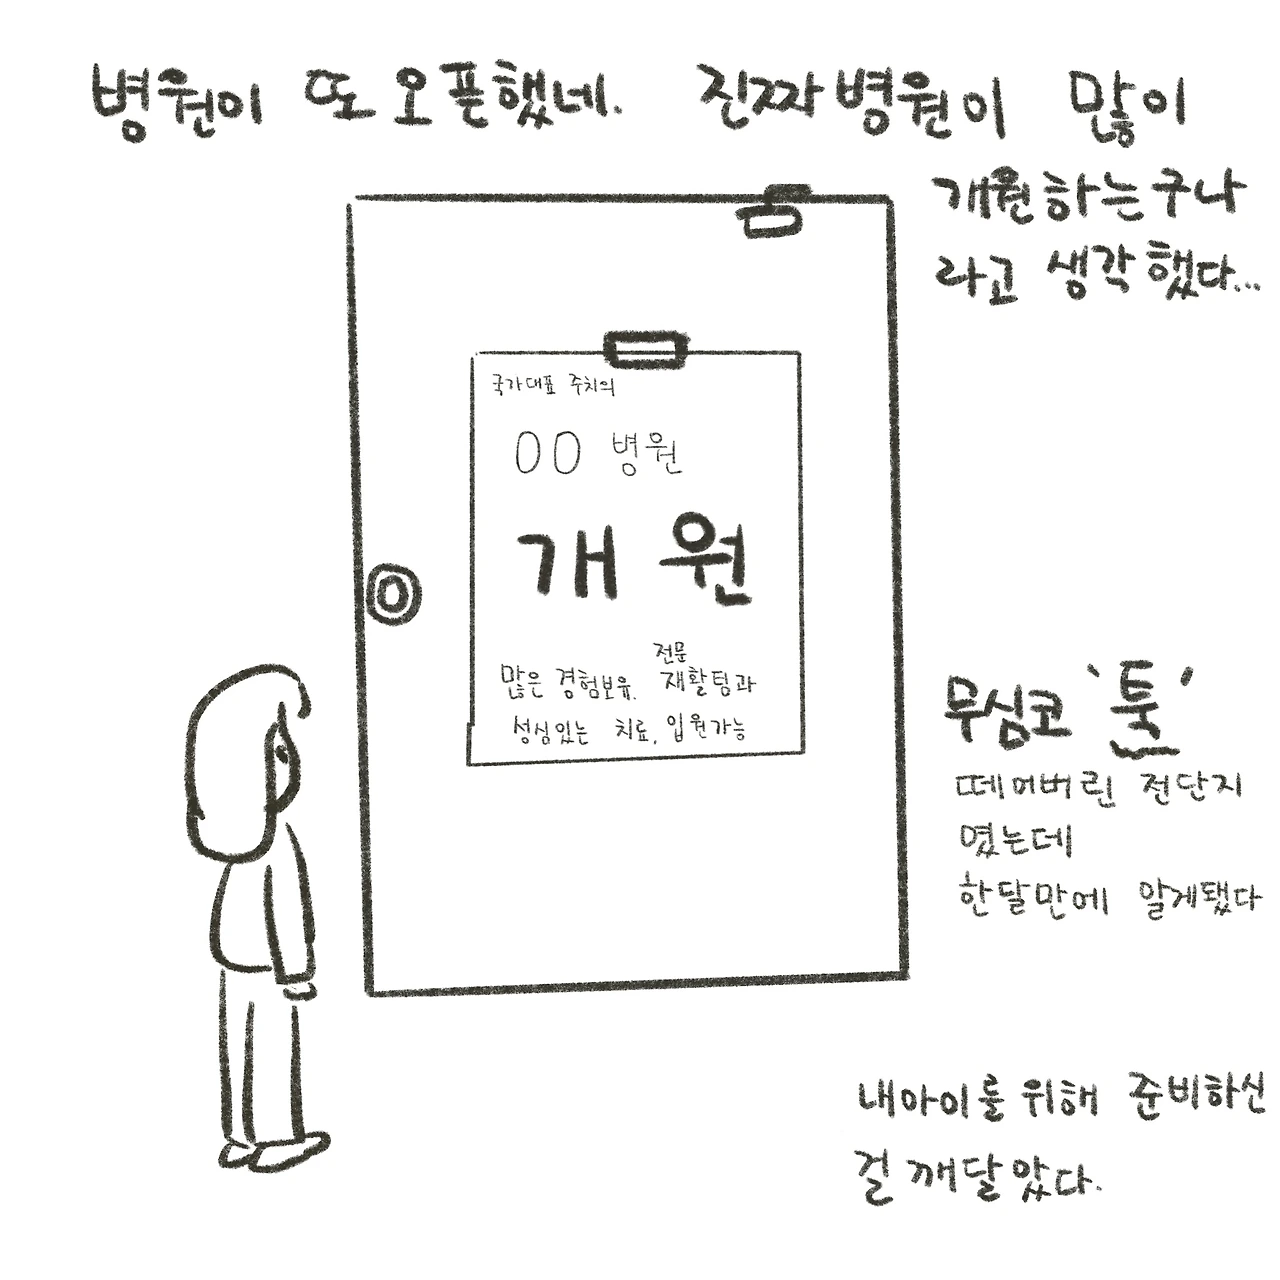 병원이 또 오픈했네. 진짜 병원이 많이
개원하는구나
라고 생각했다...
국가대표 주치의
00 병원
개원
전문
많은 경험보유. 재활팀과
성심있는 치료, 입원가능
무심코 '툭'
떼어버린 전단지
였는데
한달만에 알게됐다
내아이를 위해 준비하신
걸 깨달았다.